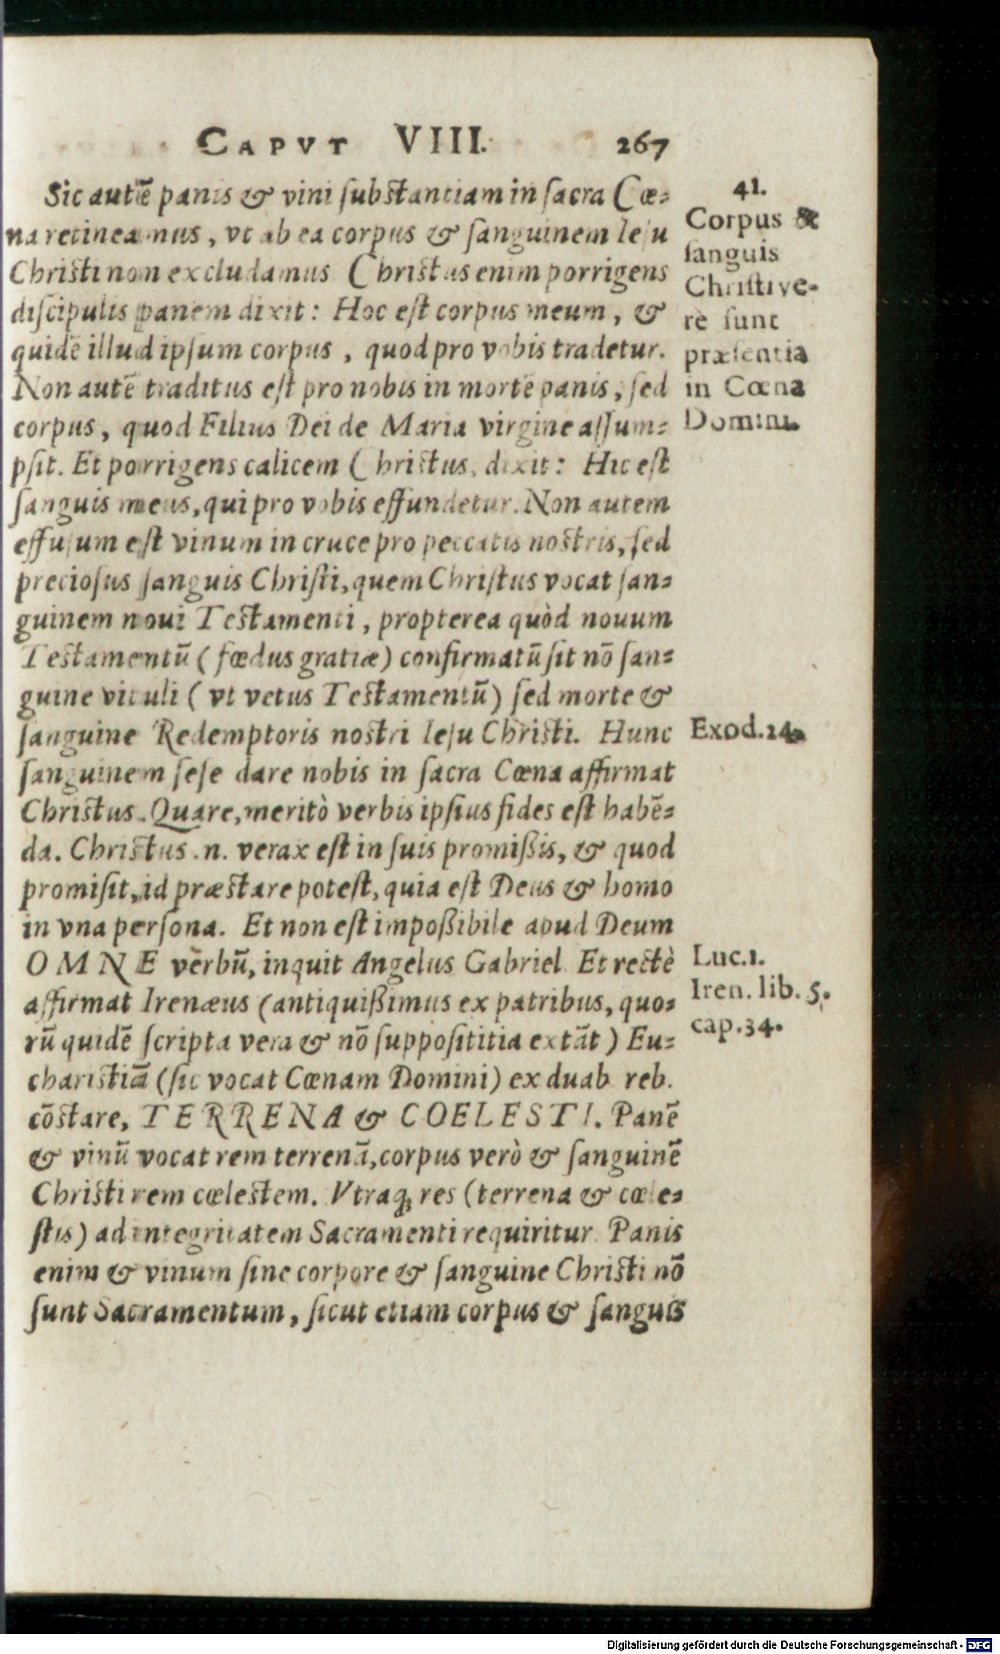 CAPVT VIII. 267
Sic autē panis & vini ſubstantiam in ſacra Cœ-
na retineamus, vt ab ea corpus & ſanguinem Ieſu
Christi non excludamus Christus enim porrigens
diſcipulis panem dixit: Hoc eſt corpus meum, &
quidē illud ipſum corpus, quod pro vobis tradetur.
Non autē traditus eſt pro nobis in mortē panis, ſed
corpus, quod Filius Dei de Maria virgine aſſum-
pſit. Et porrigens calicem Christus, dixit: Hic eſt
ſanguis meus, qui pro vobis effundetur. Non autem
effuſum eſt vinum in cruce pro peccatis nostris, ſed
precioſus ſanguis Chriſti, quem Chriſtus vocat ſan-
guinem noui Testamenti, propterea quòd nouum
Testamentū (fœdus gratiæ) confirmatū ſit nō ſan-
guine vituli (vt vetus Testamentū) ſed morte &
ſanguine Redemptoris nostri Ieſu Christi. Hunc
ſanguinem ſeſe dare nobis in ſacra Cœna affirmat
Christus. Quare, meritò verbis ipſius fides eſt habē-
da. Christus .n. verax eſt in ſuis promißis, & quod
promiſit, id præstare poteſt, quia eſt Deus & homo
in vna perſona. Et non eſt impoßibile apud Deum
OMNE verbū, inquit Angelus Gabriel. Et rectè
affirmat Irenæus (antiquißimus ex patribus, quo-
rū quidē ſcripta vera & nō ſuppoſititia extāt) Eu-
charistiā (ſic vocat Cœnam Domini) ex duab. reb.
cōstare, TERRENA & COELESTI. Panē
& vinū vocat rem terrenā, corpus verò & ſanguinē
Christi rem cœlestem. Vtraq; res (terrena & cœle-
ſtis) ad integritatem Sacramenti requiritur. Panis
enim & vinum ſine corpore & ſanguine Christi nō
ſunt Sacramentum, ſicut etiam corpus & ſanguis
41.
Corpus &
ſanguis
Chriſti ve-
rè ſunt
præſentia
in Cœna
Domini.
Exod. 24.
Luc. 1.
Iren. lib. 5.
cap. 34.
Digitalisierung gefördert durch die Deutsche Forschungsgemeinschaft - DFG